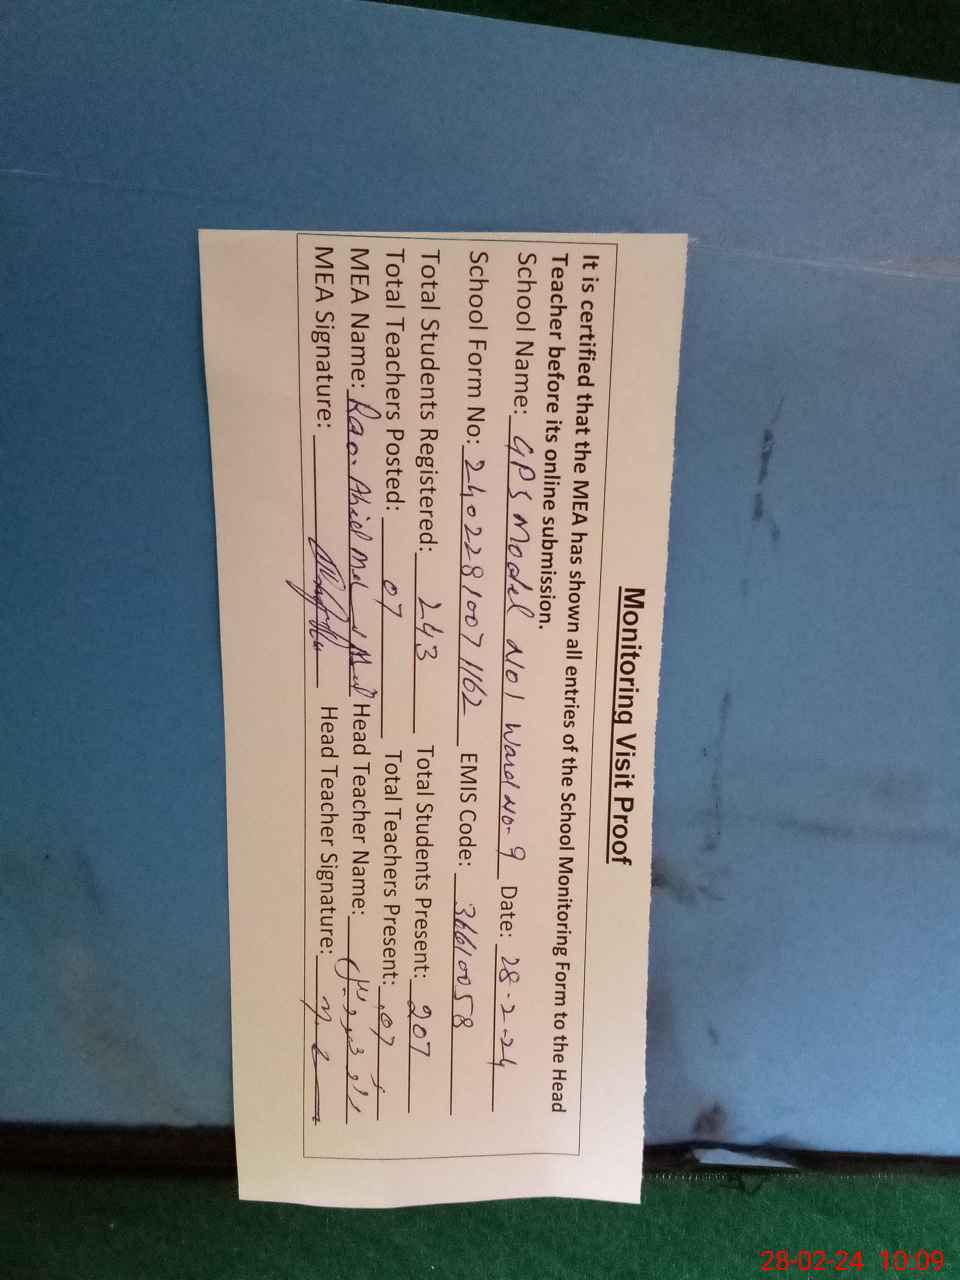 Monitoring Visit Proof
It is certified that the MEA has shown all entries of the School Monitoring Form to the Head
Teacher before its online submission.
School Name: GPS Model No 1 Ward No- 9 Date: 28-2-24
School Form No: 24022810071162 EMIS Code: 36610058
Total Students Registered: 243 Total Students Present: 207
Total Teachers Posted: 07 Total Teachers Present: 07
MEA Name: Rao. Head Teacher Name:
MEA Signature: Head Teacher Signature:
28-02-24 10:09